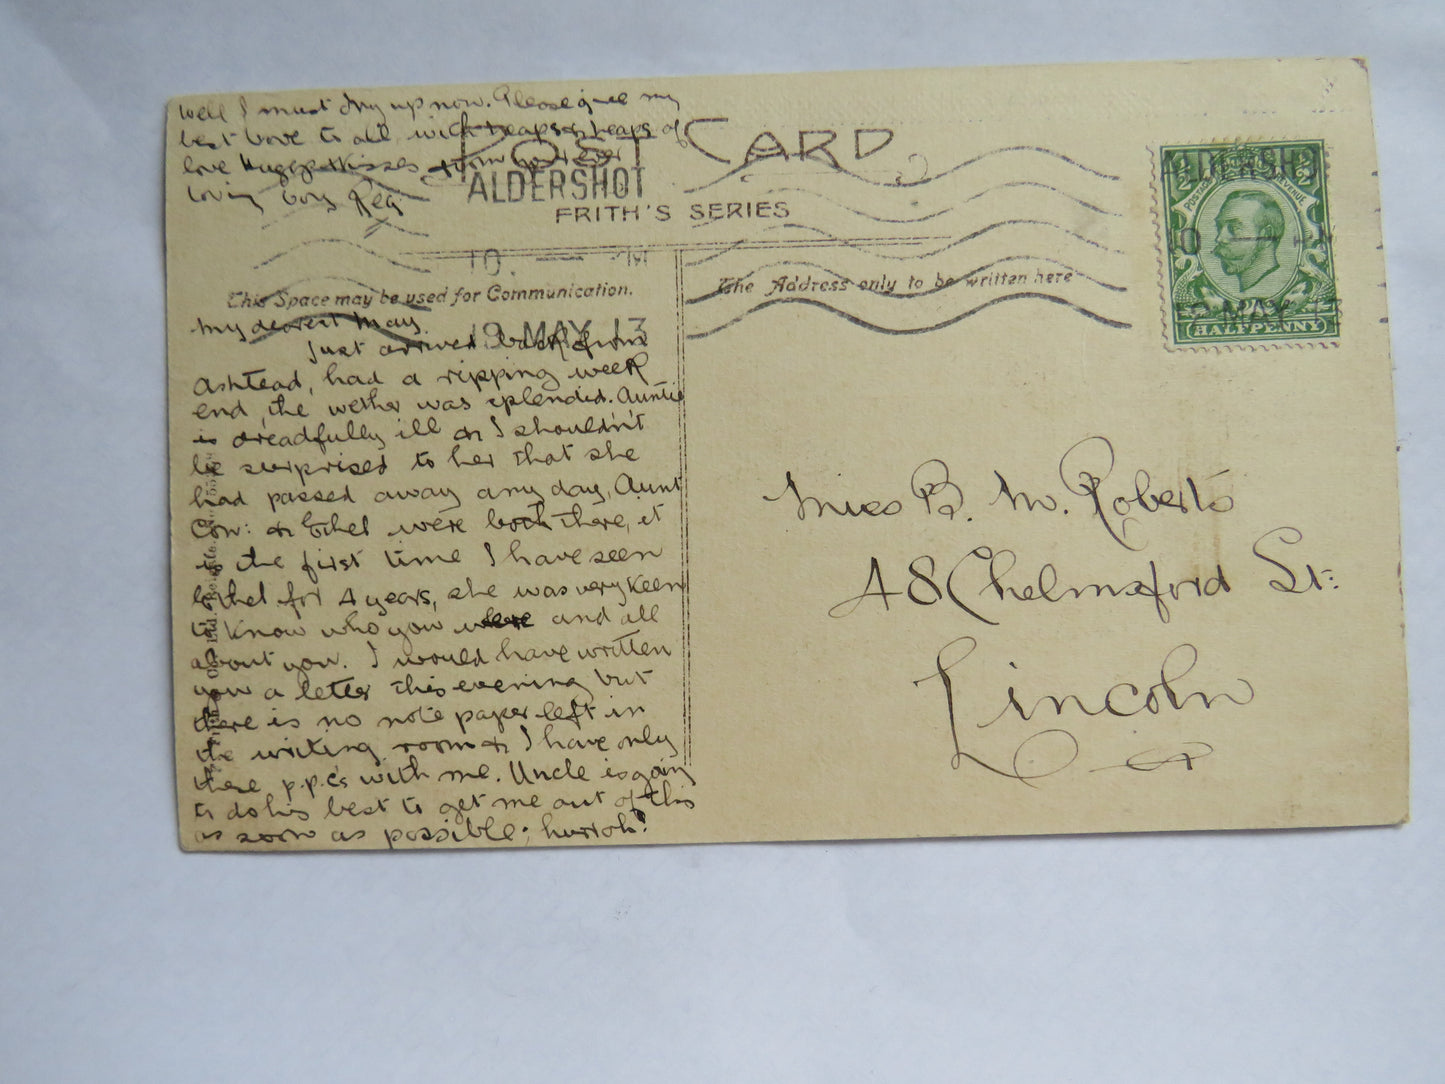 Well I must dry up now. Please give my
best love to all with heaps & heaps of
love Huggs & Kisses from your ever
loving boy Reg
POST CARD
ALDERSHOT
FRITH'S SERIES
10.
19 MAY 13
This Space may be used for Communication.
The Address only to be written here
ALDERSHO
POSTAGE REVENUE
HALFPENNY
My dearest May.
Just arrived back from
Ashtead, had a ripping week
end, the wether was splendid. Auntie
is dreadfully ill & I shouldn't
be surprised to her that she
had passed away any day, Aunt
Con: & Ethel were both there, it
is the first time I have seen
Ethel for 4 years, she was very keen
to know who you were and all
about you. I would have written
you a letter this evening but
there is no note paper left in
the writing room & I have only
these p.p.c's with me. Uncle is going
to do his best to get me out of this
as soon as possible; hurroh!
Miss B. M. Roberts
48 Chelmsford St:
Lincoln